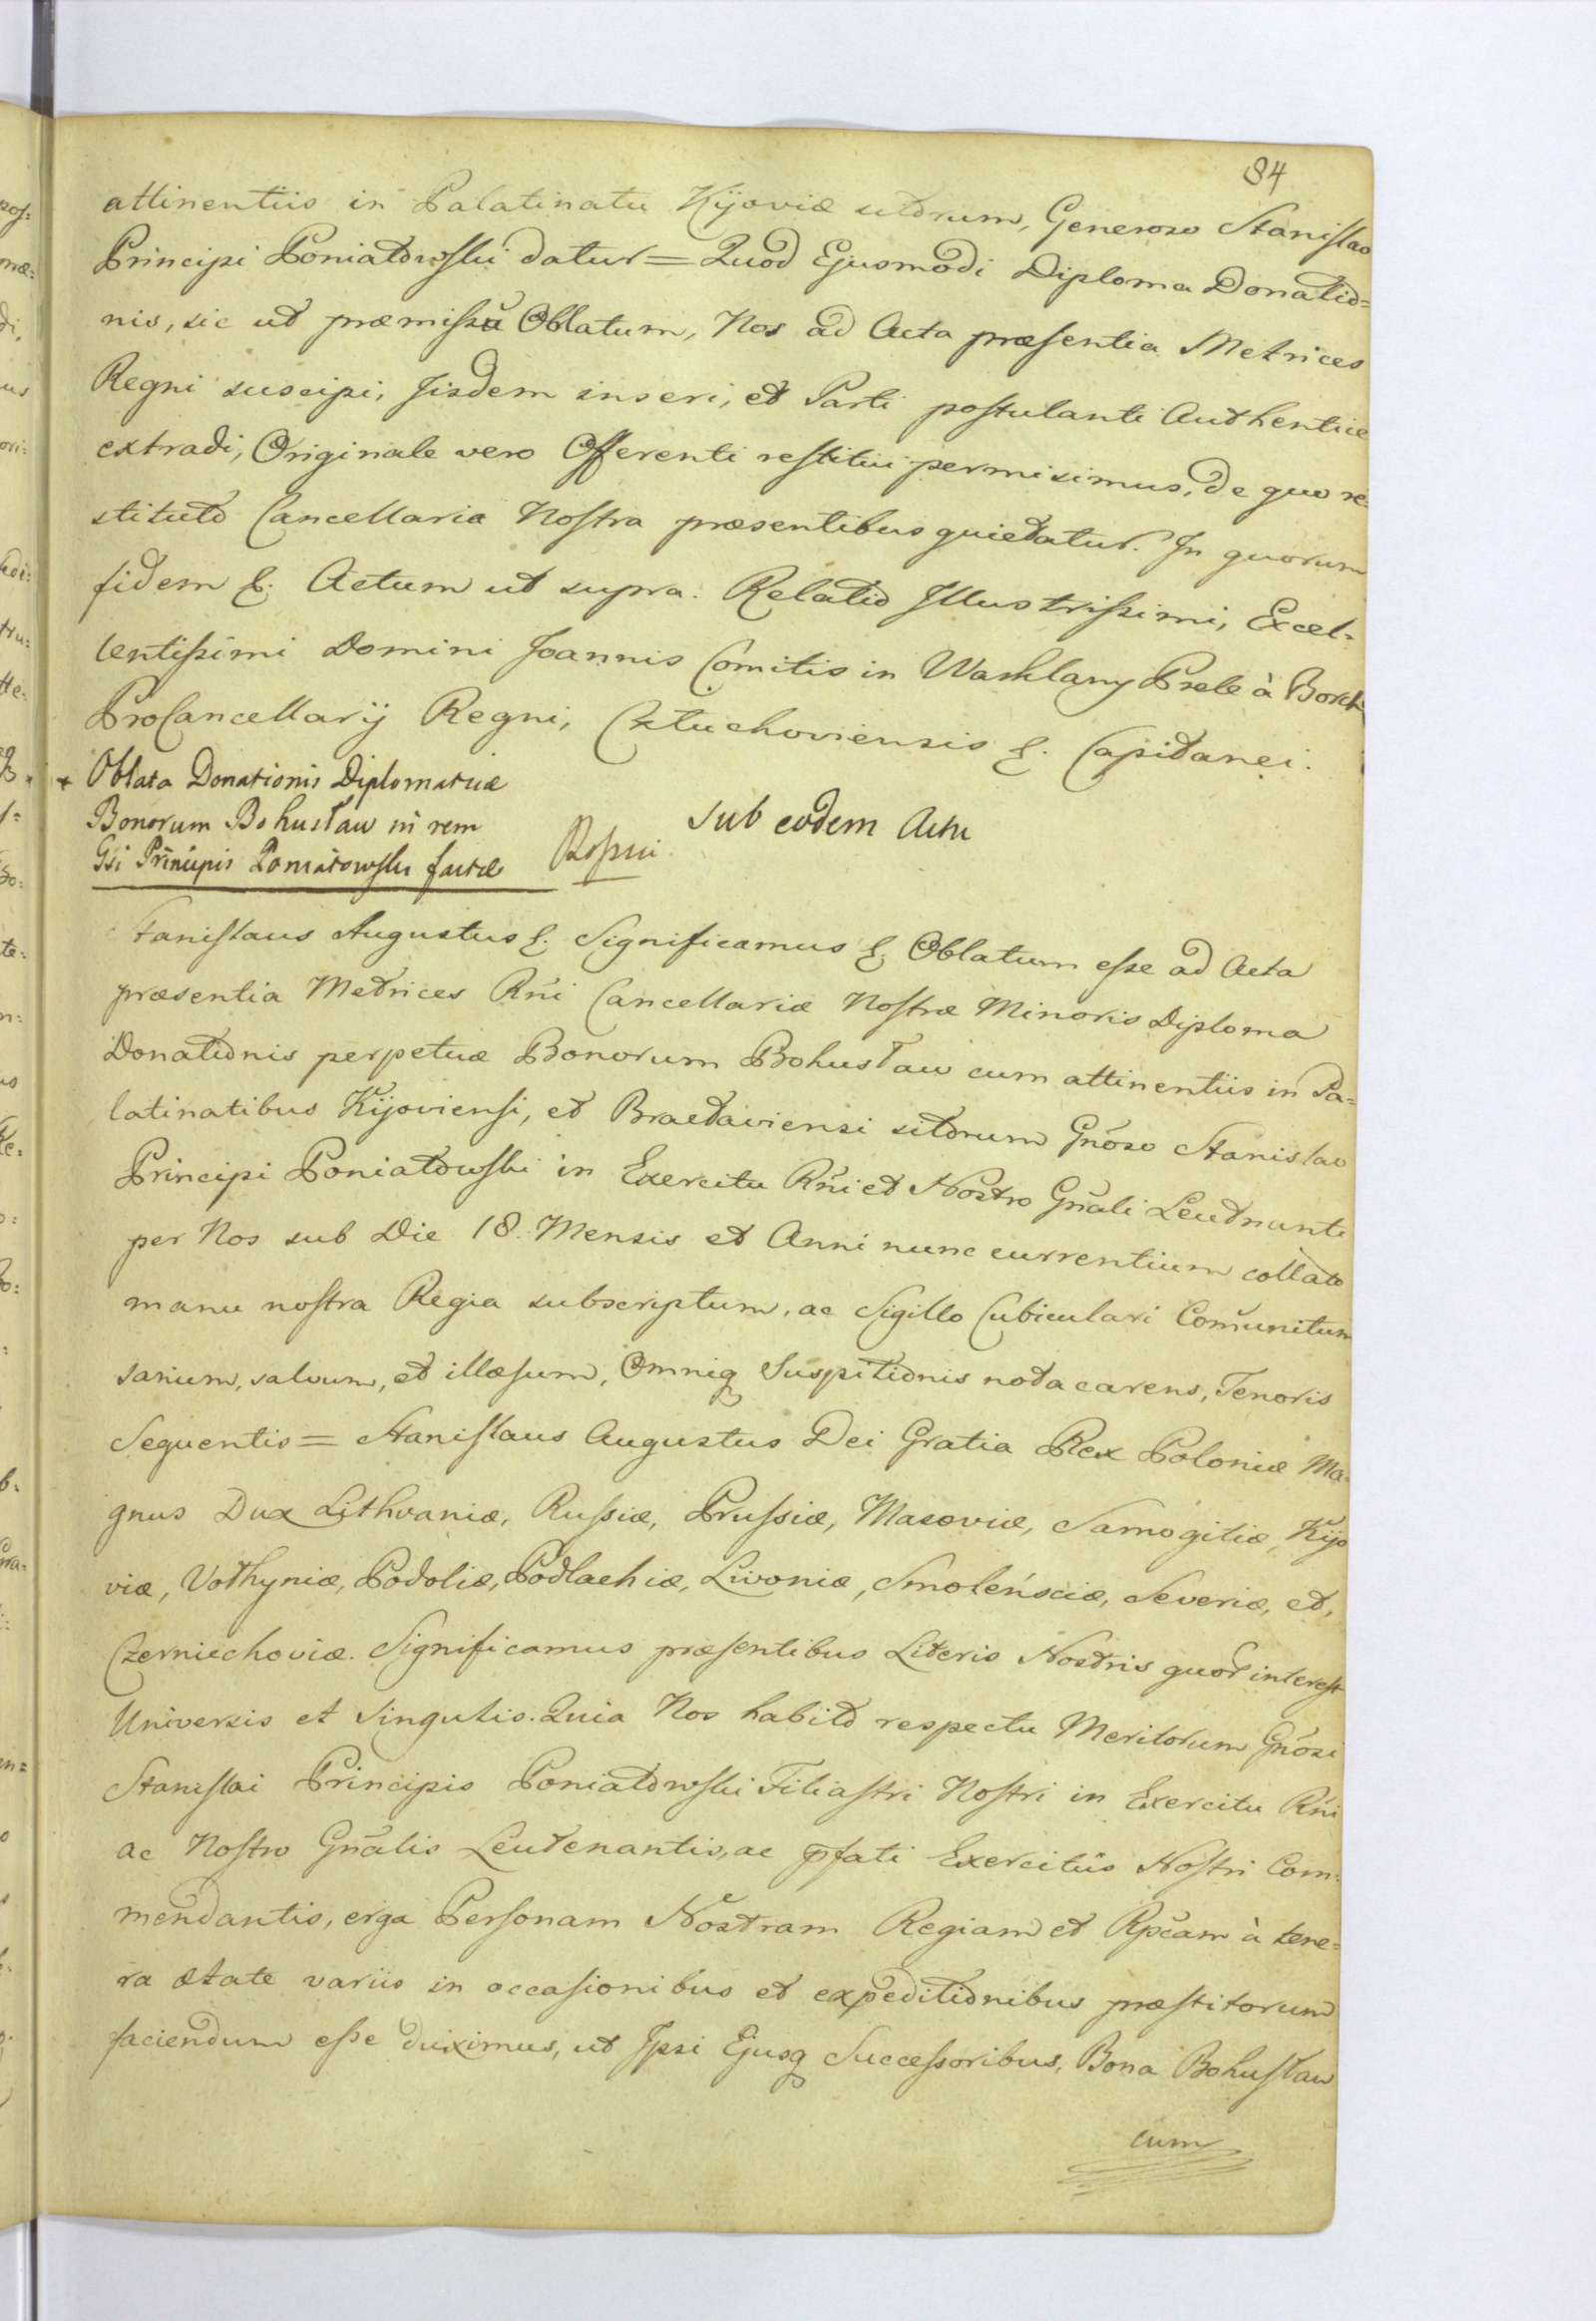 84
attinentiis in Palatinatu Kijoviæ sitorum, Generoso Stanislao
Principi Poniatowski datur= Quod Ejusmodi Diploma Donatio=
nis, sic ut præmissũ Oblatum, Nos ad Acta præsentia Metrices
Regni suscipi, Iisdem inseri, et Parti postulanti Authentice
extradi, Originale vero Offerenti restitui permisimus, de quo re=
stituto Cancellaria Nostra præsentibus quietatur. In quorum
fidem &. Actum ut supra. Relatio Illustrissimi, Excel=
lentissimi Domini Joannis Comitis in Warklany Prele à Borch
ProCancellarij Regni, Człuchoviensis &. Capitanei.
+ Oblata Donationis Diplomaticæ
Bonorum Bohusław in rem
Gsi Principis Poniatowski factæ
sub eodem Actu
Stanislaus Augustus &. Significamus &. Oblatum esse ad Acta
præsentia Metrices Rñi Cancellariæ Nostræ Minoris Diploma
Donationis perpetuæ Bonorum Bohusław cum attinentiis in Pa=
latinatibus Kijoviensi, et Bractaviensi sitorum Gnõso Stanislao
Principi Poniatowski in Exercitu Rñi et Nostro Gñali Leutnanti
per Nos sub Die 18. Mensis et Anni nunc currentium collato
manu nostra Regia subscriptum, ac Sigillo Cubiculari Com̃unitum
sanum, salvum, et illæsum, Omniq Suspitionis nota carens, Tenoris
Sequentis= Stanislaus Augustus Dei Gratia Rex Poloniæ Ma=
gnus Dux Lithvaniæ, Russiæ, Prussiæ, Masoviæ, Samogitiæ, Kijo
viæ, Vołhyniæ, Podoliæ, Podlachiæ, Livoniæ, Smoleńsciæ, Severiæ, et,
Czerniechoviæ. Significamus præsentibus Literis Nostris quor interest
Universis et Singulis. Quia Nos habito respectu Meritorum Gnõsi
Stanislai Principis Poniatowski Filiastri Nostri in Exercitu Rñi
ac Nostro Gñalis Leutenantis, ac p̃fati Exercitûs Nostri Com=
mendantis, erga Personam Nostram Regiam et Rpc̃am à tene=
ra ætate variis in occasionibus et expeditionibus præstitorum
faciendum esse duximus, ut Ipsi Ejusq Successoribus, Bona Bohusław
cum